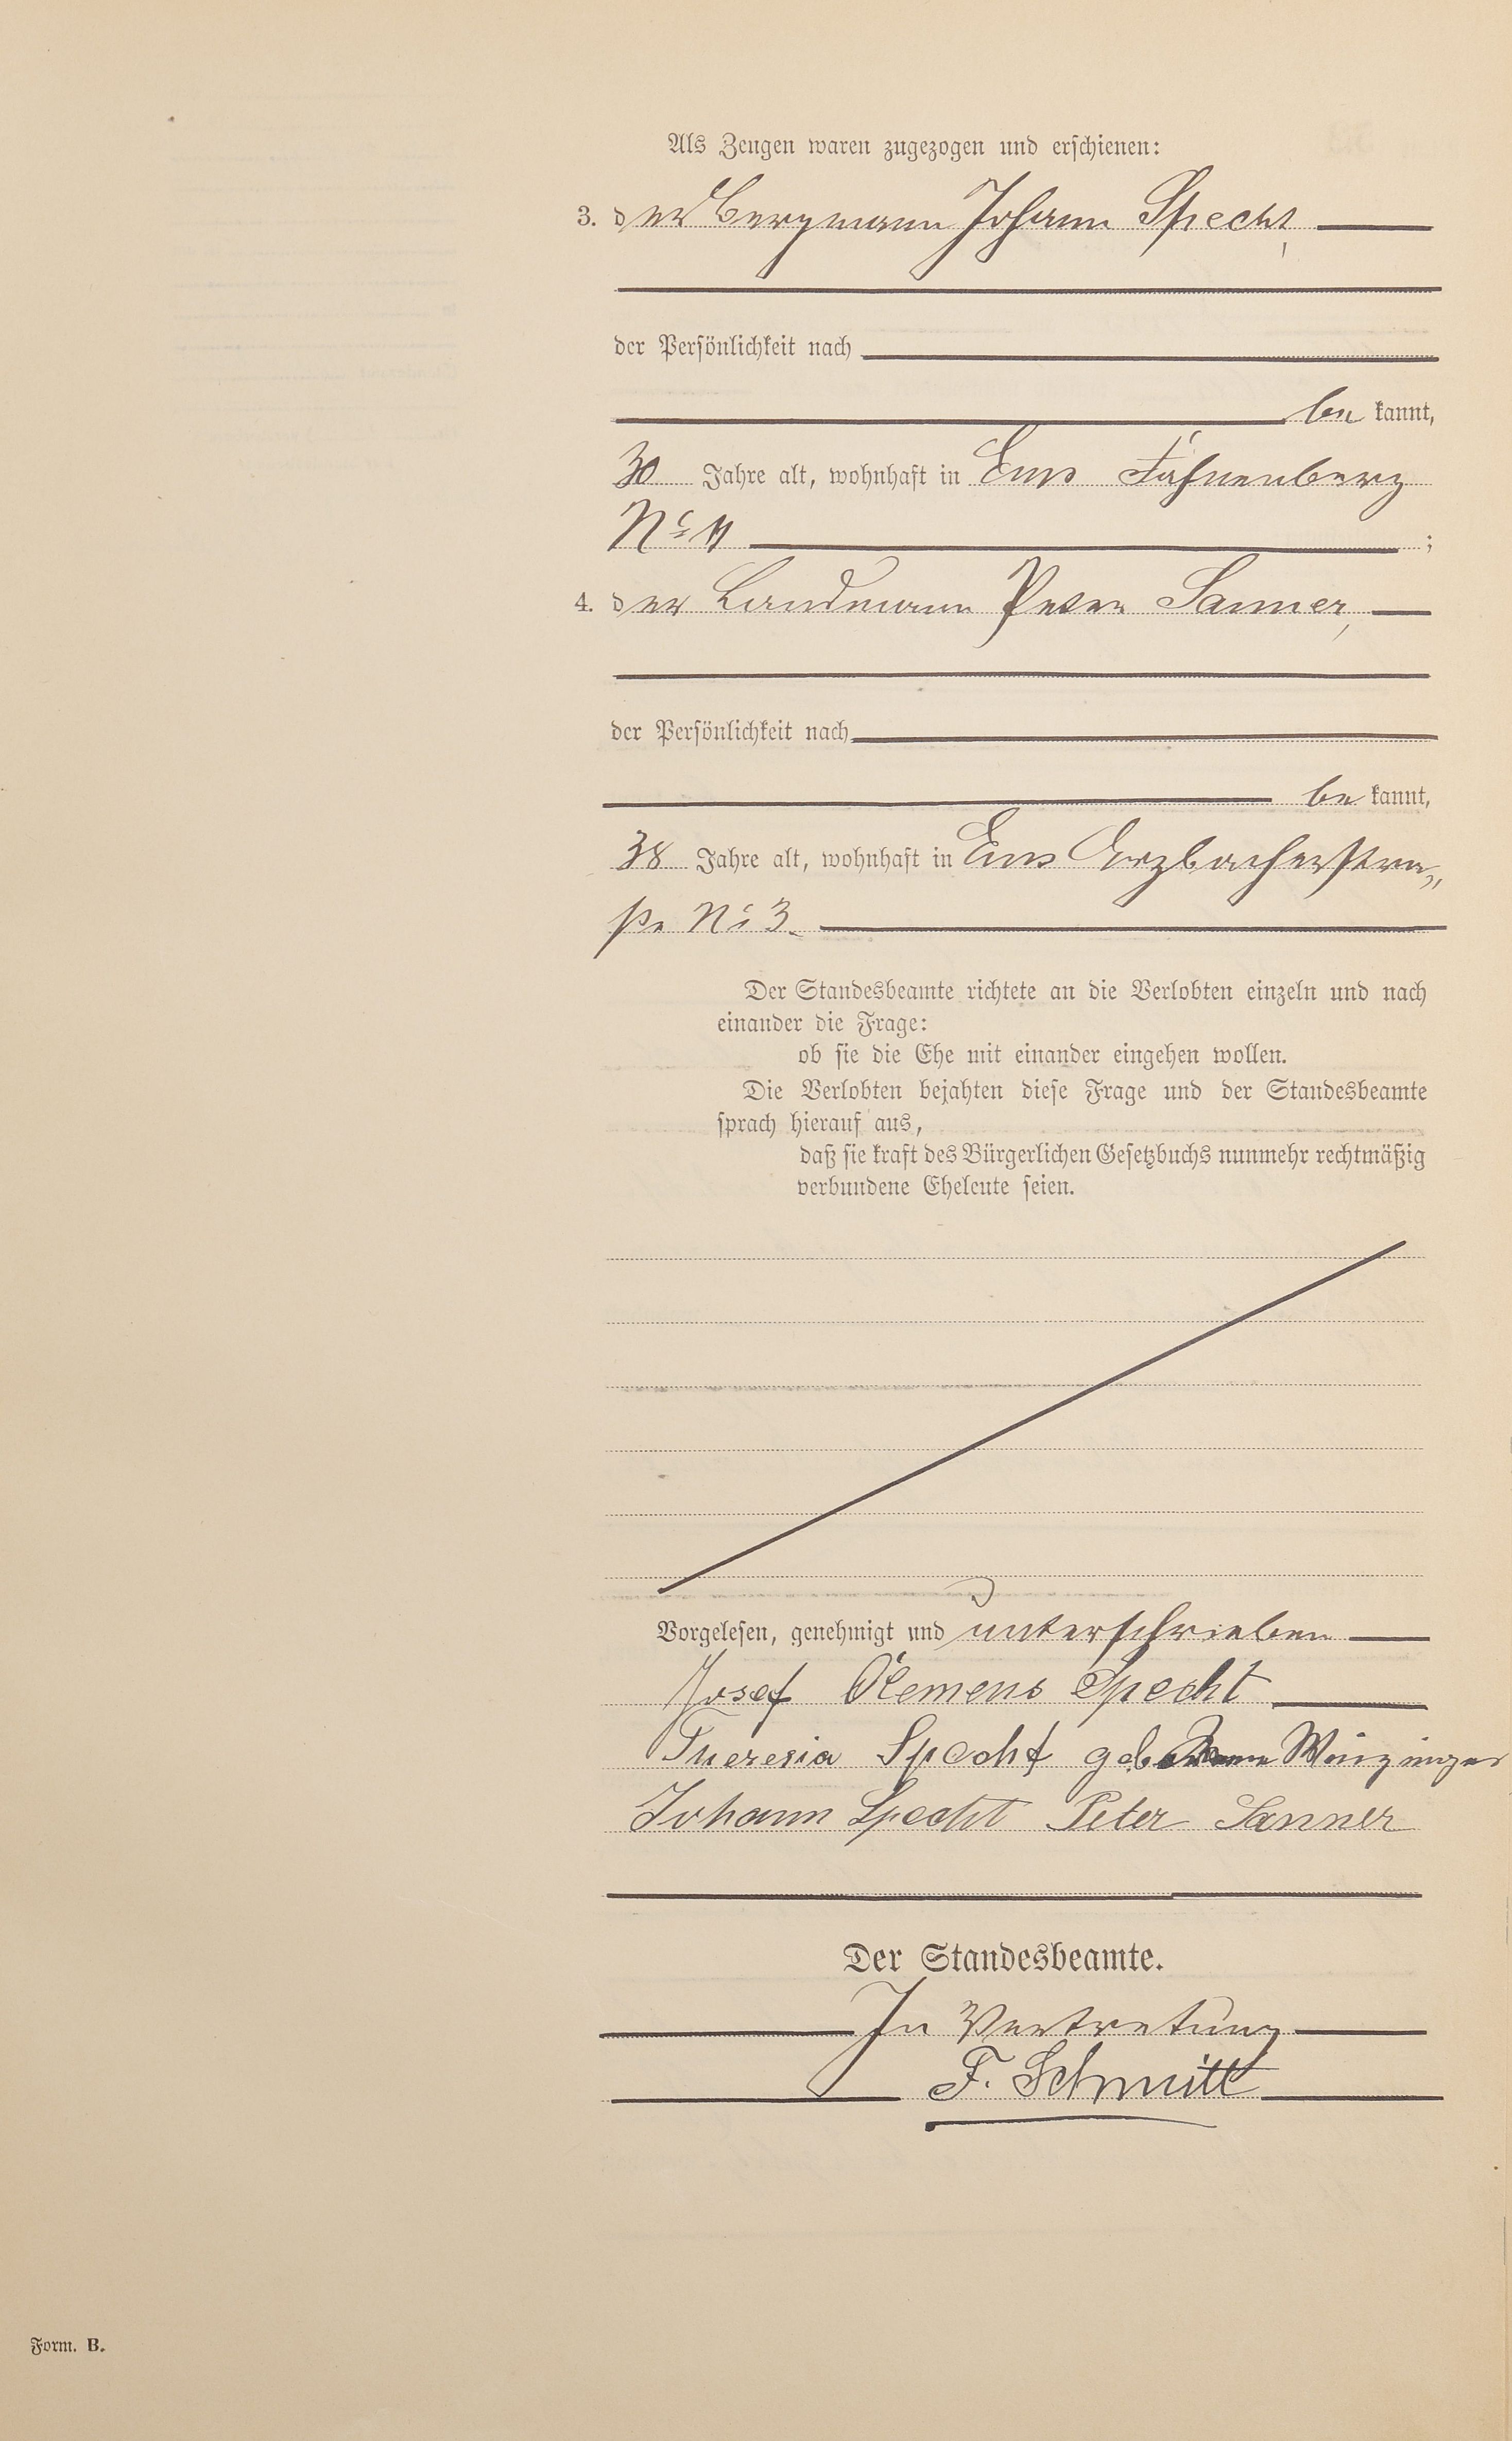 Als Zeugen waren zugezogen und erschienen:
3. der Bergmann Johann Specht,
der Persönlichkeit nach
be kannt,
30 Jahre alt, wohnhaft in Ems Fahnenberg
No 11 ;
4. der Landmann Peter Sanner,
der Persönlichkeit nach
be kannt,
38 Jahre alt, wohnhaft in Ems Arzbacherstra„
ße No 3.
Der Standesbeamte richtete an die Verlobten einzeln und nach
einander die Frage:
ob sie die Ehe mit einander eingehen wollen.
Die Verlobten bejahten diese Frage und der Standesbeamte
sprach hierauf aus,
daß sie kraft des Bürgerlichen Gesetzbuchs nunmehr rechtmäßig
verbundene Eheleute seien.
Vorgelesen, genehmigt und unterschrieben
Josef Clemens Specht
Theresia Specht geb
Johann Specht Peter Sanner
Der Standesbeamte.
In Vertretung
F. Schmitt
Form. B.